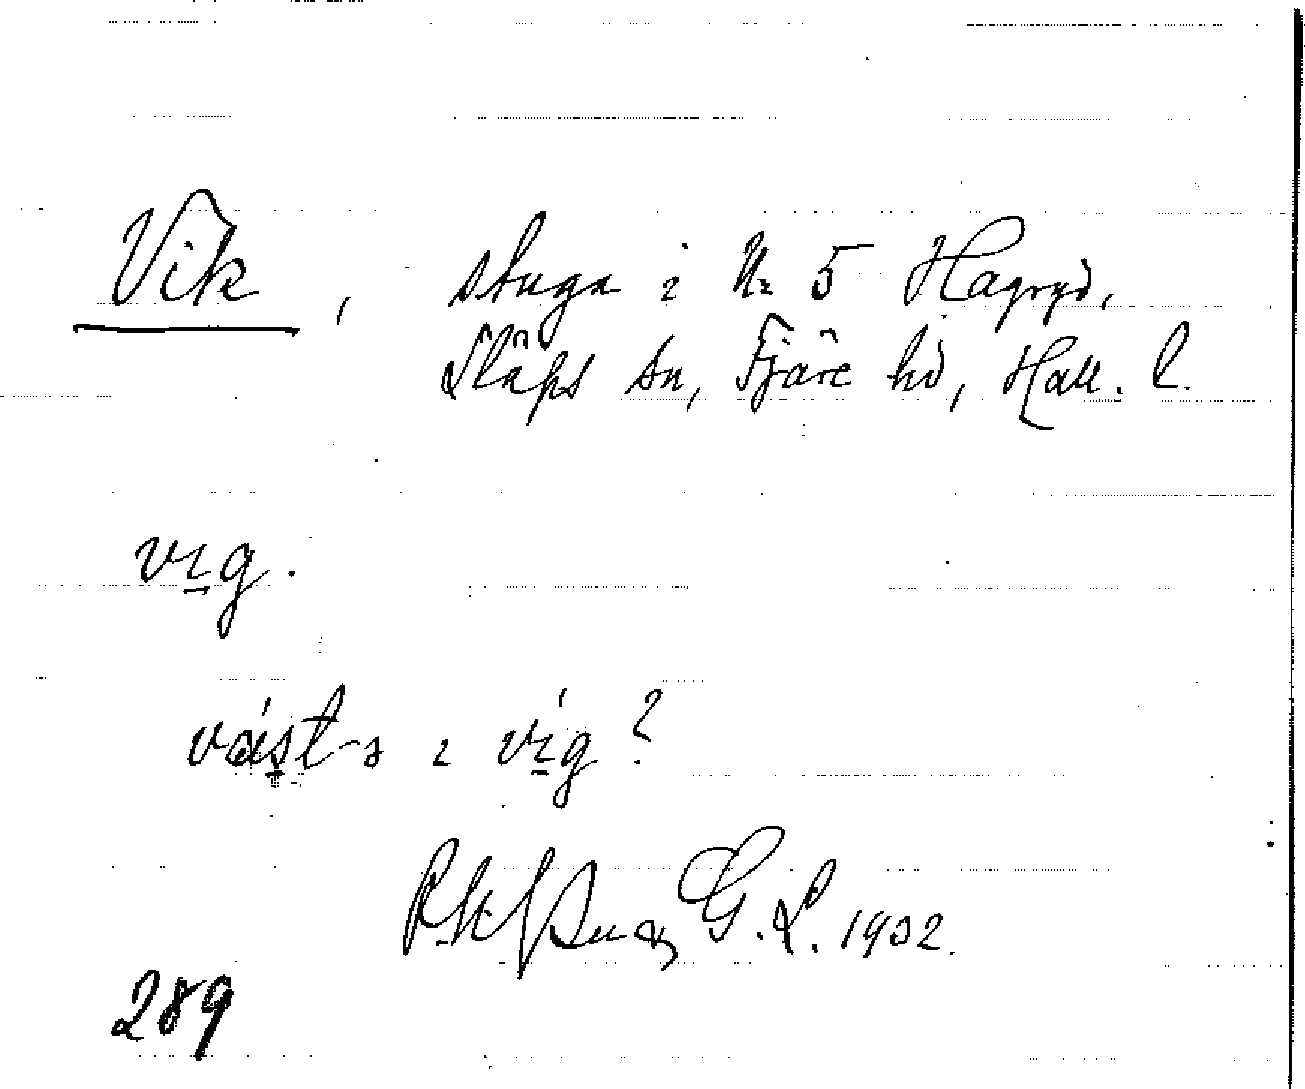 Vik, stuga i Nr 5 Hagryd,
Släps sn, Fjäre hd, Hall. l.
vɪ̲g.
vást-ə ɪ vɪ̲́g?
G. L. 1932.
289